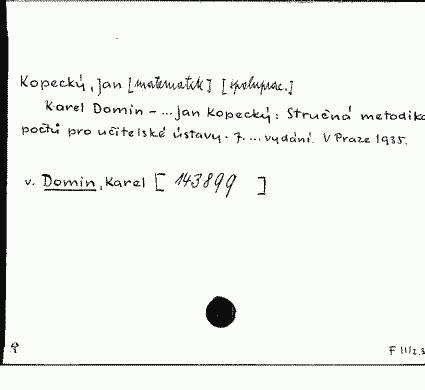 Kopecký, Jan [matematik] [spoluprac.]
Karel Domin - ... Jan Kopecký: Stručná metodika
počtů pro učitelské ústavy. 7. ... vydání. V Praze 1935.
v. Domin, Karel [ 143899 ]
F 11/2.3